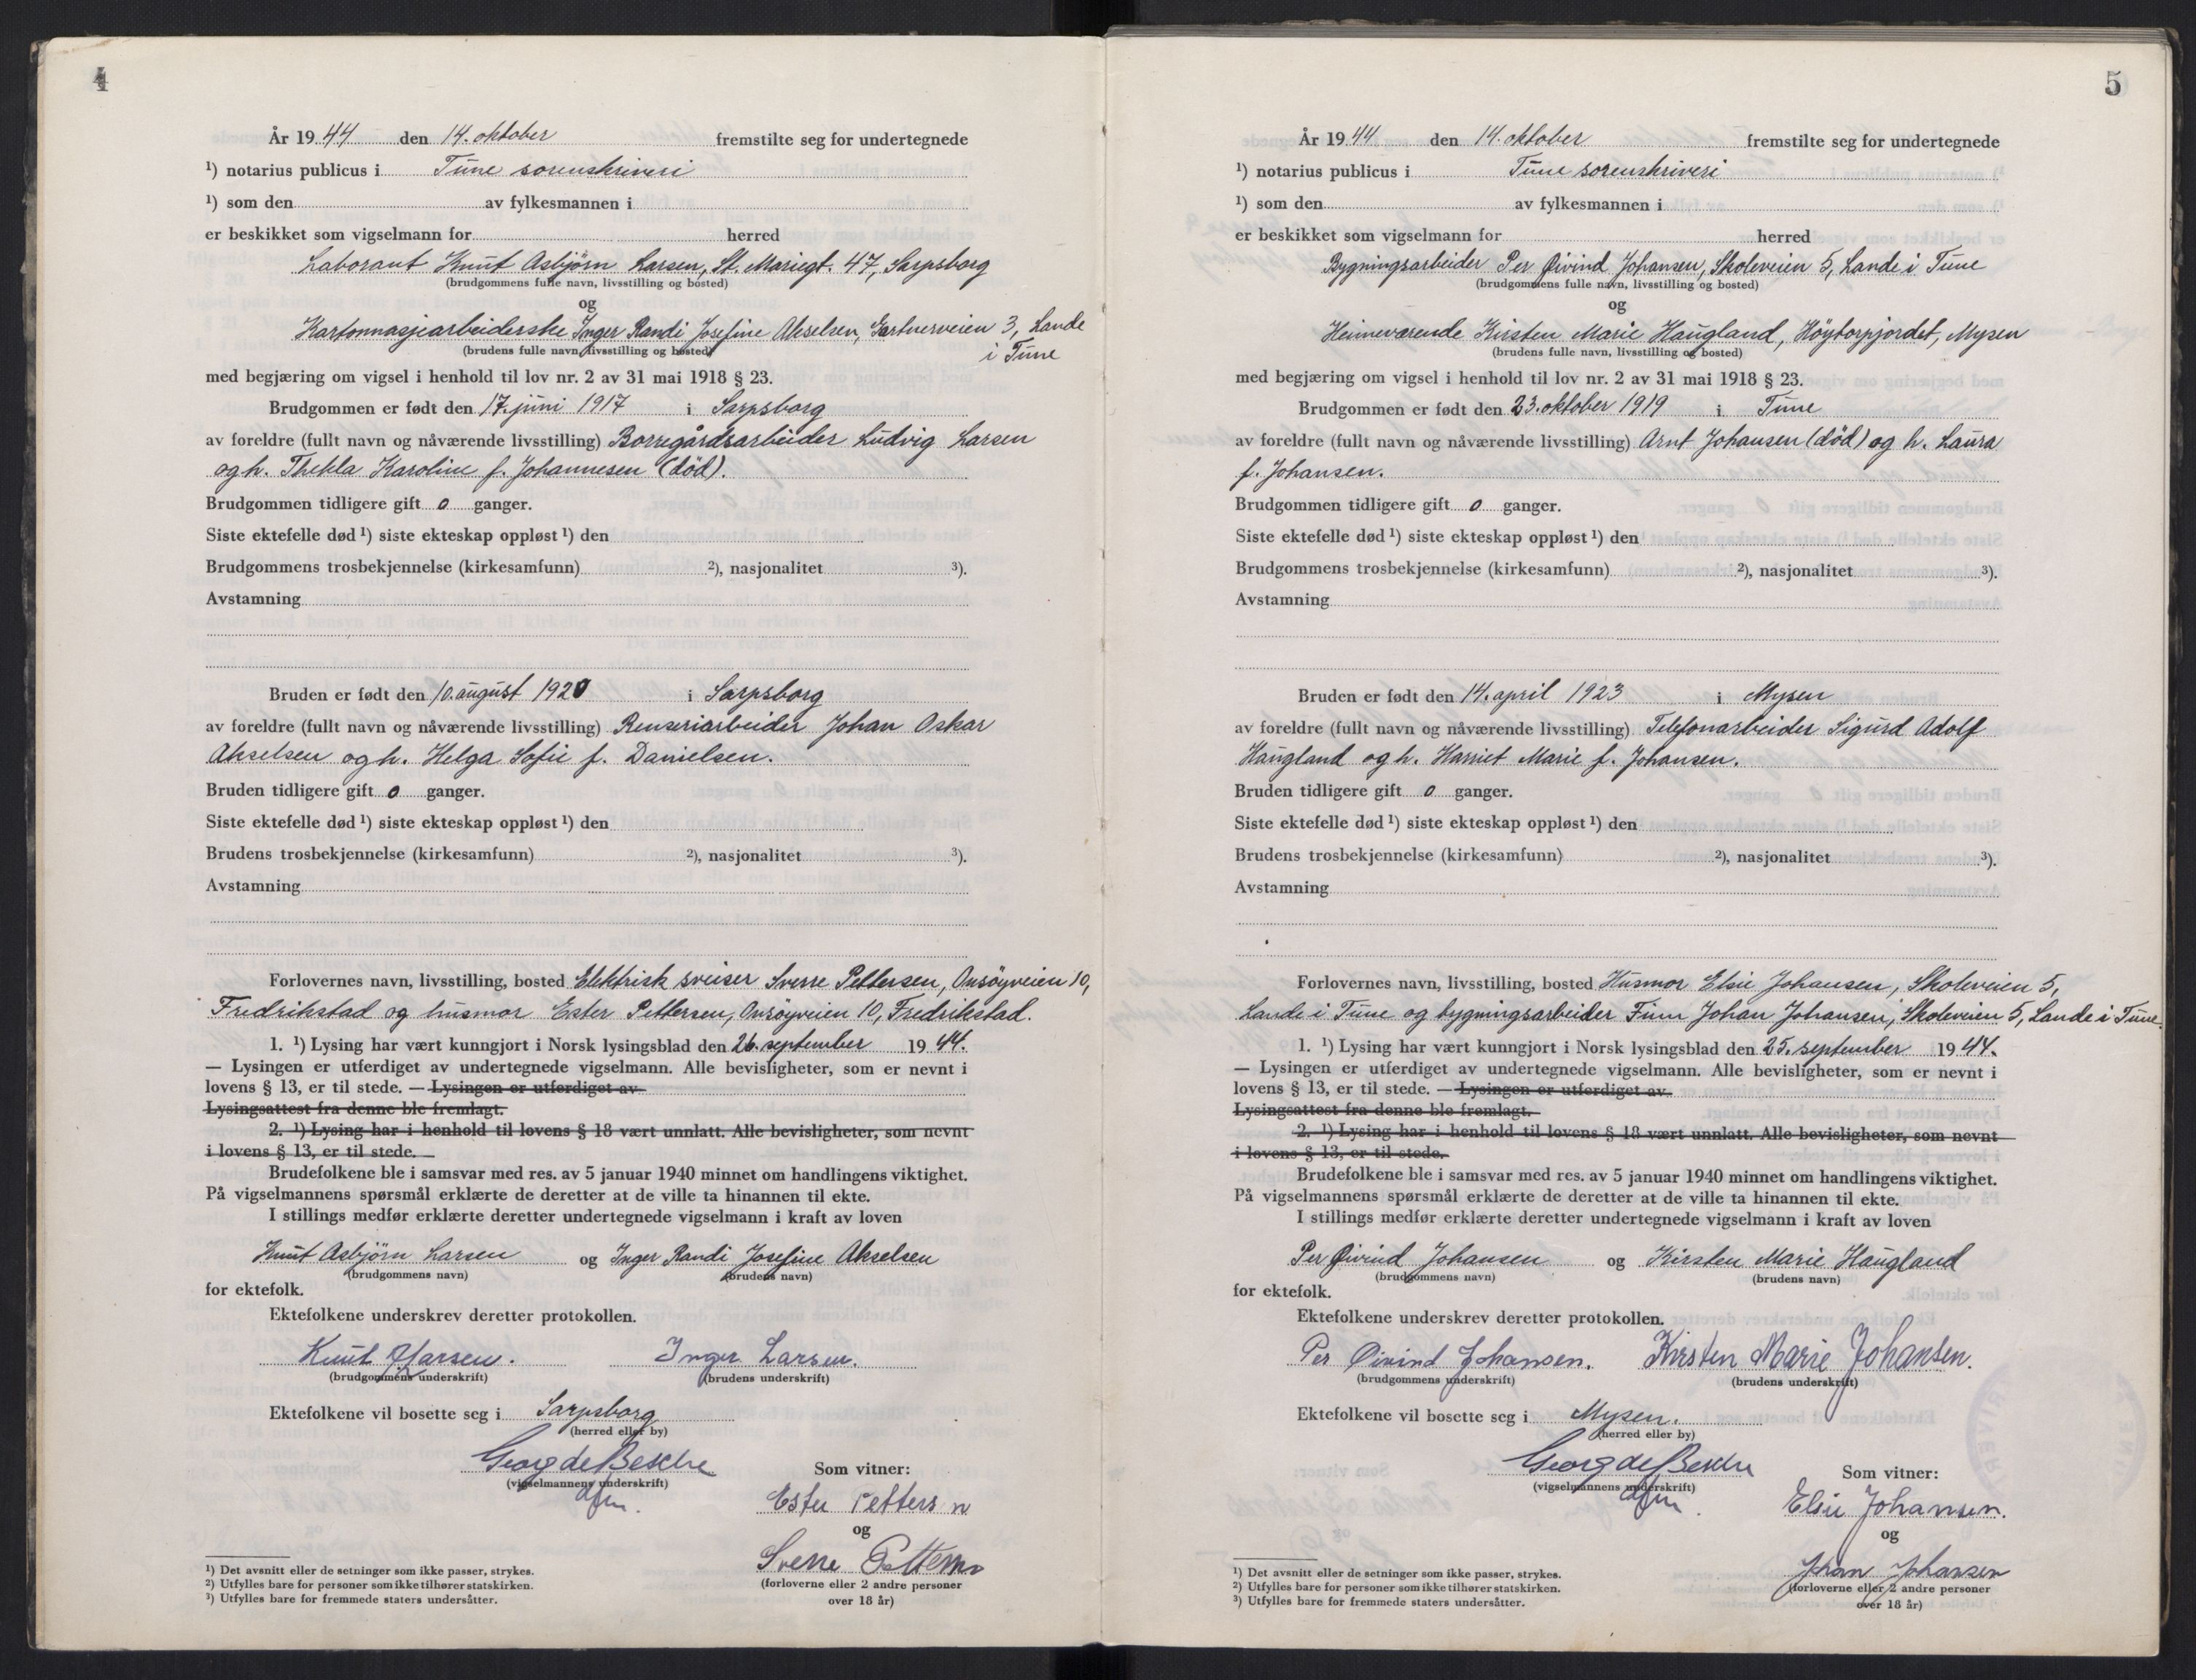 4
År 1944 den 14. oktober fremstilte seg for undertegnede
¹) notarius publicus i Tune sorenskriveri
¹) som den av fylkesmannen i
er beskikket som vigselmann for herred
Laborant Knut Asbjörn Larsen, St. Mariegt. 47, Sarpsborg
(brudgommens fulle navn, livsstilling og bosted)
og
Kartonnasjearbeiderske Inger Randi Josefine Akselsen, Gartnerveien 3, Lande
i Tune
(brudens fulle navn, livsstilling og bosted)
med begjæring om vigsel i henhold til lov nr. 2 av 31 mai 1918 § 23.
Brudgommen er født den 17. juni 1917 i Sarpsborg
av foreldre (fullt navn og nåværende livsstilling) Borregårdsarbeider Ludvig Larsen
og h. Thekla Karoline f. Johannesen (död).
Brudgommen tidligere gift 0 ganger.
Siste ektefelle død ¹) siste ekteskap oppløst ¹) den
Brudgommens trosbekjennelse (kirkesamfunn) ²), nasjonalitet ³).
Avstamning
Bruden er født den 10. august 1920 i Sarpsborg
av foreldre (fullt navn og nåværende livsstilling) Renseriarbeider Johan Oskar
Akselsen og h. Helga Sofie f. Danielsen.
Bruden tidligere gift 0 ganger.
Siste ektefelle død ¹) siste ekteskap oppløst ¹) den
Brudens trosbekjennelse (kirkesamfunn) ²), nasjonalitet ³).
Avstamning
Forlovernes navn, livsstilling, bosted Elektrisk sveiser Sverre Pettersen, Onsöyveien 10,
Fredrikstad og husmor Ester Pettersen, Onsöyveien 10, Fredrikstad.
1. ¹) Lysing har vært kunngjort i Norsk lysingsblad den 26. september 1944.
— Lysingen er utferdiget av undertegnede vigselmann. Alle bevisligheter, som er nevnt i
lovens § 13, er til stede. — Lysingen er utferdiget av
Lysingsattest fra denne ble fremlagt.
2. ¹) Lysing har i henhold til lovens § 18 vært unnlatt. Alle bevisligheter, som nevnt
i lovens § 13, er til stede.
Brudefolkene ble i samsvar med res. av 5 januar 1940 minnet om handlingens viktighet.
På vigselmannens spørsmål erklærte de deretter at de ville ta hinannen til ekte.
I stillings medfør erklærte deretter undertegnede vigselmann i kraft av loven
Knut Asbjörn Larsen og Inger Randi Josefine Akselsen
(brudgommens navn) (brudens navn)
for ektefolk.
Ektefolkene underskrev deretter protokollen.
Knut A Larsen. Inger Larsen.
(brudgommens underskrift) (brudens underskrift)
Ektefolkene vil bosette seg i Sarpsborg
(herred eller by)
Georg de Besche
(vigselmannens underskrift)
Som vitner:
Ester Pettersen
og
Sverre Pettersen
(forloverne eller 2 andre personer
over 18 år)
¹) Det avsnitt eller de setninger som ikke passer, strykes.
²) Utfylles bare for personer som ikke tilhører statskirken.
³) Utfylles bare for fremmede staters undersåtter.
5
År 1944 den 14. oktober fremstilte seg for undertegnede
¹) notarius publicus i Tune sorenskriveri
¹) som den av fylkesmannen i
er beskikket som vigselmann for herred
Bygningsarbeider Per Øivind Johansen, Skoleveien 5, Lande i Tune
(brudgommens fulle navn, livsstilling og bosted)
og
Heimeværende Kirsten Marie Haugland, Höytorpjordet, Mysen
(brudens fulle navn, livsstilling og bosted)
med begjæring om vigsel i henhold til lov nr. 2 av 31 mai 1918 § 23.
Brudgommen er født den 23. oktober 1919 i Tune
av foreldre (fullt navn og nåværende livsstilling) Arnt Johansen (död) og h. Laura
f. Johansen.
Brudgommen tidligere gift 0 ganger.
Siste ektefelle død ¹) siste ekteskap oppløst ¹) den
Brudgommens trosbekjennelse (kirkesamfunn) ²), nasjonalitet ³).
Avstamning
Bruden er født den 14. april 1923 i Mysen
av foreldre (fullt navn og nåværende livsstilling) Telefonarbeider Sigurd Adolf
Haugland og h. Harriet Marie f. Johansen.
Bruden tidligere gift 0 ganger.
Siste ektefelle død ¹) siste ekteskap oppløst ¹) den
Brudens trosbekjennelse (kirkesamfunn) ²), nasjonalitet ³).
Avstamning
Forlovernes navn, livsstilling, bosted Husmor Elsie Johansen, Skoleveien 5,
Lande i Tune og bygningsarbeider Finn Johan Johansen, Skoleveien 5, Lande i Tune.
1. ¹) Lysing har vært kunngjort i Norsk lysingsblad den 25. september 1944.
— Lysingen er utferdiget av undertegnede vigselmann. Alle bevisligheter, som er nevnt i
lovens § 13, er til stede. — Lysingen er utferdiget av
Lysingsattest fra denne ble fremlagt.
2. ¹) Lysing har i henhold til lovens § 18 vært unnlatt. Alle bevisligheter, som nevnt
i lovens § 13, er til stede.
Brudefolkene ble i samsvar med res. av 5 januar 1940 minnet om handlingens viktighet.
På vigselmannens spørsmål erklærte de deretter at de ville ta hinannen til ekte.
I stillings medfør erklærte deretter undertegnede vigselmann i kraft av loven
Per Øivind Johansen og Kirsten Marie Haugland
(brudgommens navn) (brudens navn)
for ektefolk.
Ektefolkene underskrev deretter protokollen.
Per Øivind Johansen. Kirsten Marie Johansen.
(brudgommens underskrift) (brudens underskrift)
Ektefolkene vil bosette seg i Mysen.
(herred eller by)
Georg de Besche
(vigselmannens underskrift)
Som vitner:
Elsie Johansen.
og
Johan Johansen
(forloverne eller 2 andre personer
over 18 år)
¹) Det avsnitt eller de setninger som ikke passer, strykes.
²) Utfylles bare for personer som ikke tilhører statskirken.
³) Utfylles bare for fremmede staters undersåtter.